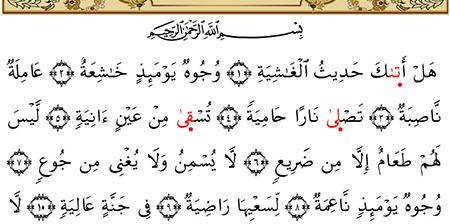 بِسْمِ ٱللَّهِ ٱلرَّحْمَـٰنِ ٱلرَّحِيمِ
هَلْ أَتَىٰكَ حَدِيثُ ٱلْغَـٰشِيَةِ ﴿١﴾ وُجُوهٌ يَوْمَئِذٍ خَـٰشِعَةٌ ﴿٢﴾ عَامِلَةٌ
نَّاصِبَةٌ ﴿٣﴾ تَصْلَىٰ نَارًا حَامِيَةً ﴿٤﴾ تُسْقَىٰ مِنْ عَيْنٍ ءَانِيَةٍ ﴿٥﴾ لَّيْسَ
لَهُمْ طَعَامٌ إِلَّا مِن ضَرِيعٍ ﴿٦﴾ لَّا يُسْمِنُ وَلَا يُغْنِى مِن جُوعٍ ﴿٧﴾
وُجُوهٌ يَوْمَئِذٍ نَّاعِمَةٌ ﴿٨﴾ لِّسَعْيِهَا رَاضِيَةٌ ﴿٩﴾ فِى جَنَّةٍ عَالِيَةٍ ﴿١٠﴾ لَّا